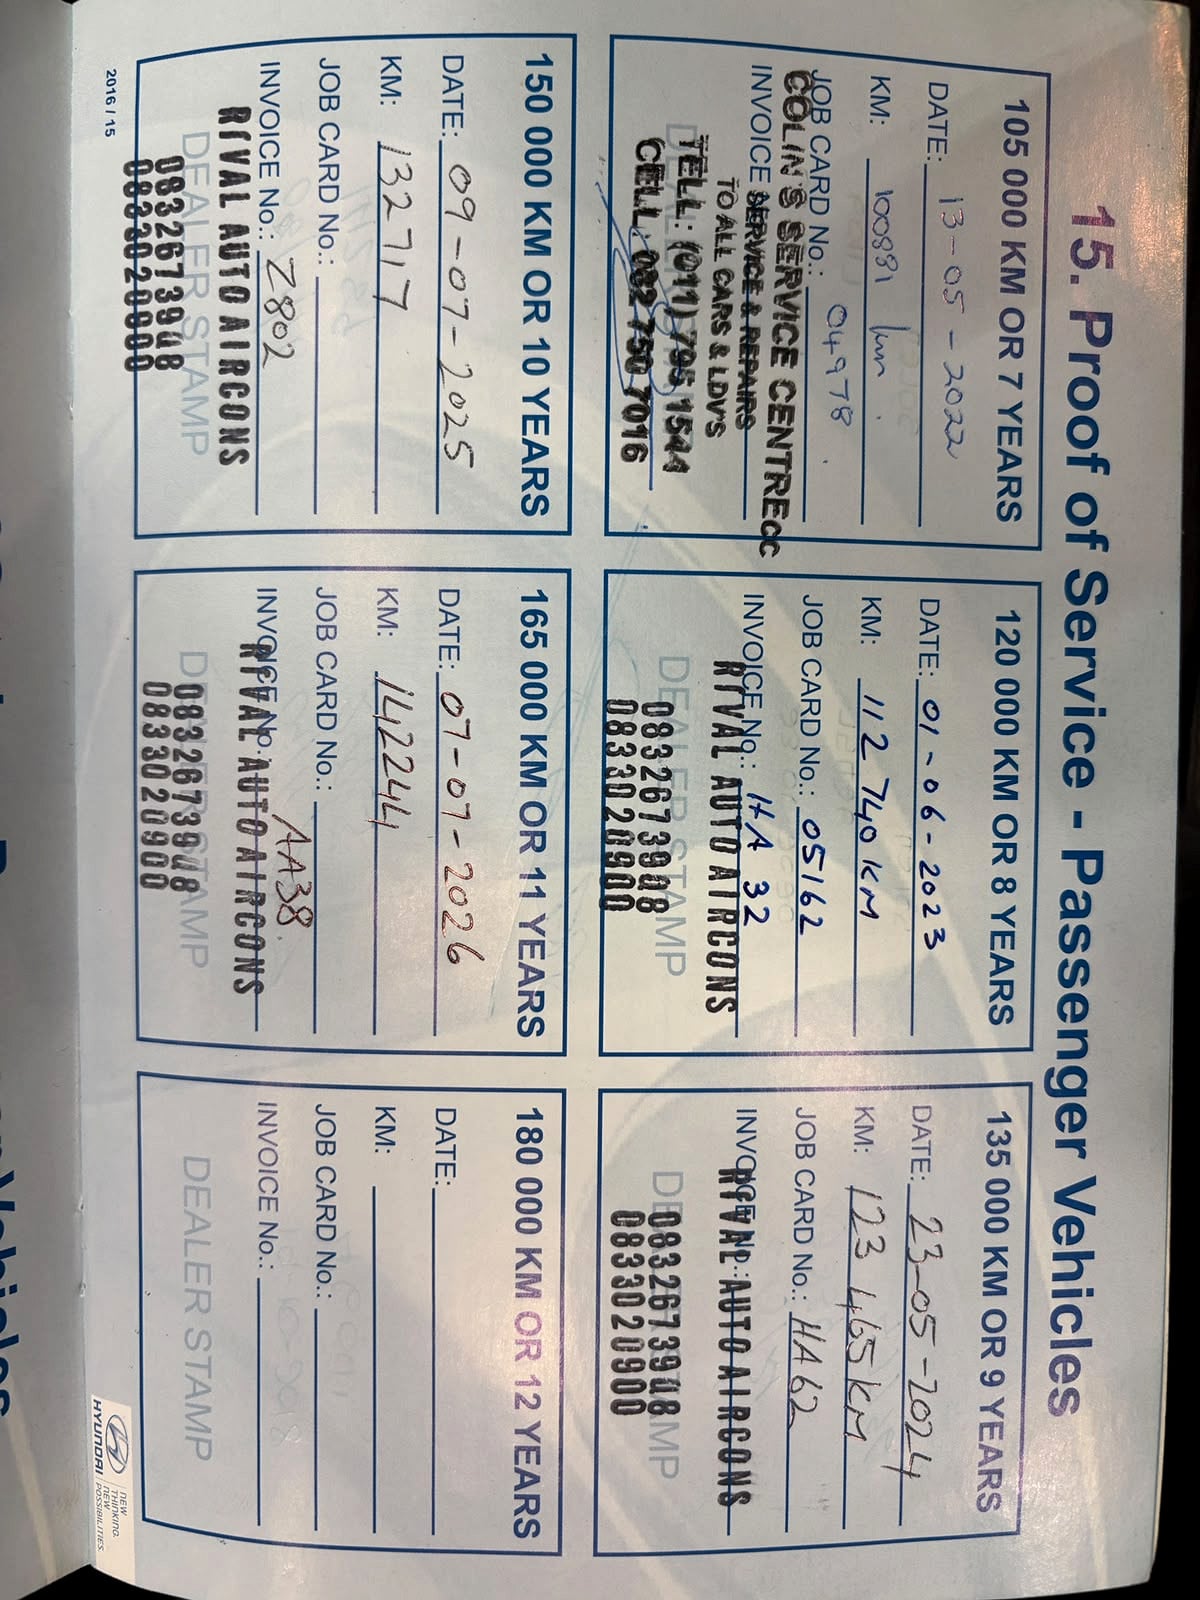 15. Proof of Service - Passenger Vehicles
105 000 KM OR 7 YEARS
DATE: 13-05-2022
KM: 100881 km.
JOB CARD No.: 04978.
COLIN'S SERVICE CENTRE CC
INVOICE
SERVICE & REPAIRS
TO ALL CARS & LDV'S
TELL: (011) 795 1544
CELL: 082 750 7016
120 000 KM OR 8 YEARS
DATE: 01-06-2023
KM: 112 740 KM
JOB CARD No.: 05162
INVOICE No.: HA 32
RIVAL AUTO AIRCONS
DEALER STAMP
0832673948
0833020900
135 000 KM OR 9 YEARS
DATE: 23-05-2024
KM: 123 465 KM
JOB CARD No.: HA62
INVOICE No.:
RIVAL AUTO AIRCONS
DEALER STAMP
0832673948
0833020900
150 000 KM OR 10 YEARS
DATE: 09-07-2025
KM: 132 717
JOB CARD No.:
INVOICE No.: Z802
RIVAL AUTO AIRCONS
DEALER STAMP
0832673948
0833020900
165 000 KM OR 11 YEARS
DATE: 07-07-2026
KM: 142244
JOB CARD No.:
INVOICE No.: AA38
RIVAL AUTO AIRCONS
DEALER STAMP
0832673948
0833020900
180 000 KM OR 12 YEARS
DATE:
KM:
JOB CARD No.:
INVOICE No.:
DEALER STAMP
2016 / 15
HYUNDAI
NEW THINKING.
NEW POSSIBILITIES.